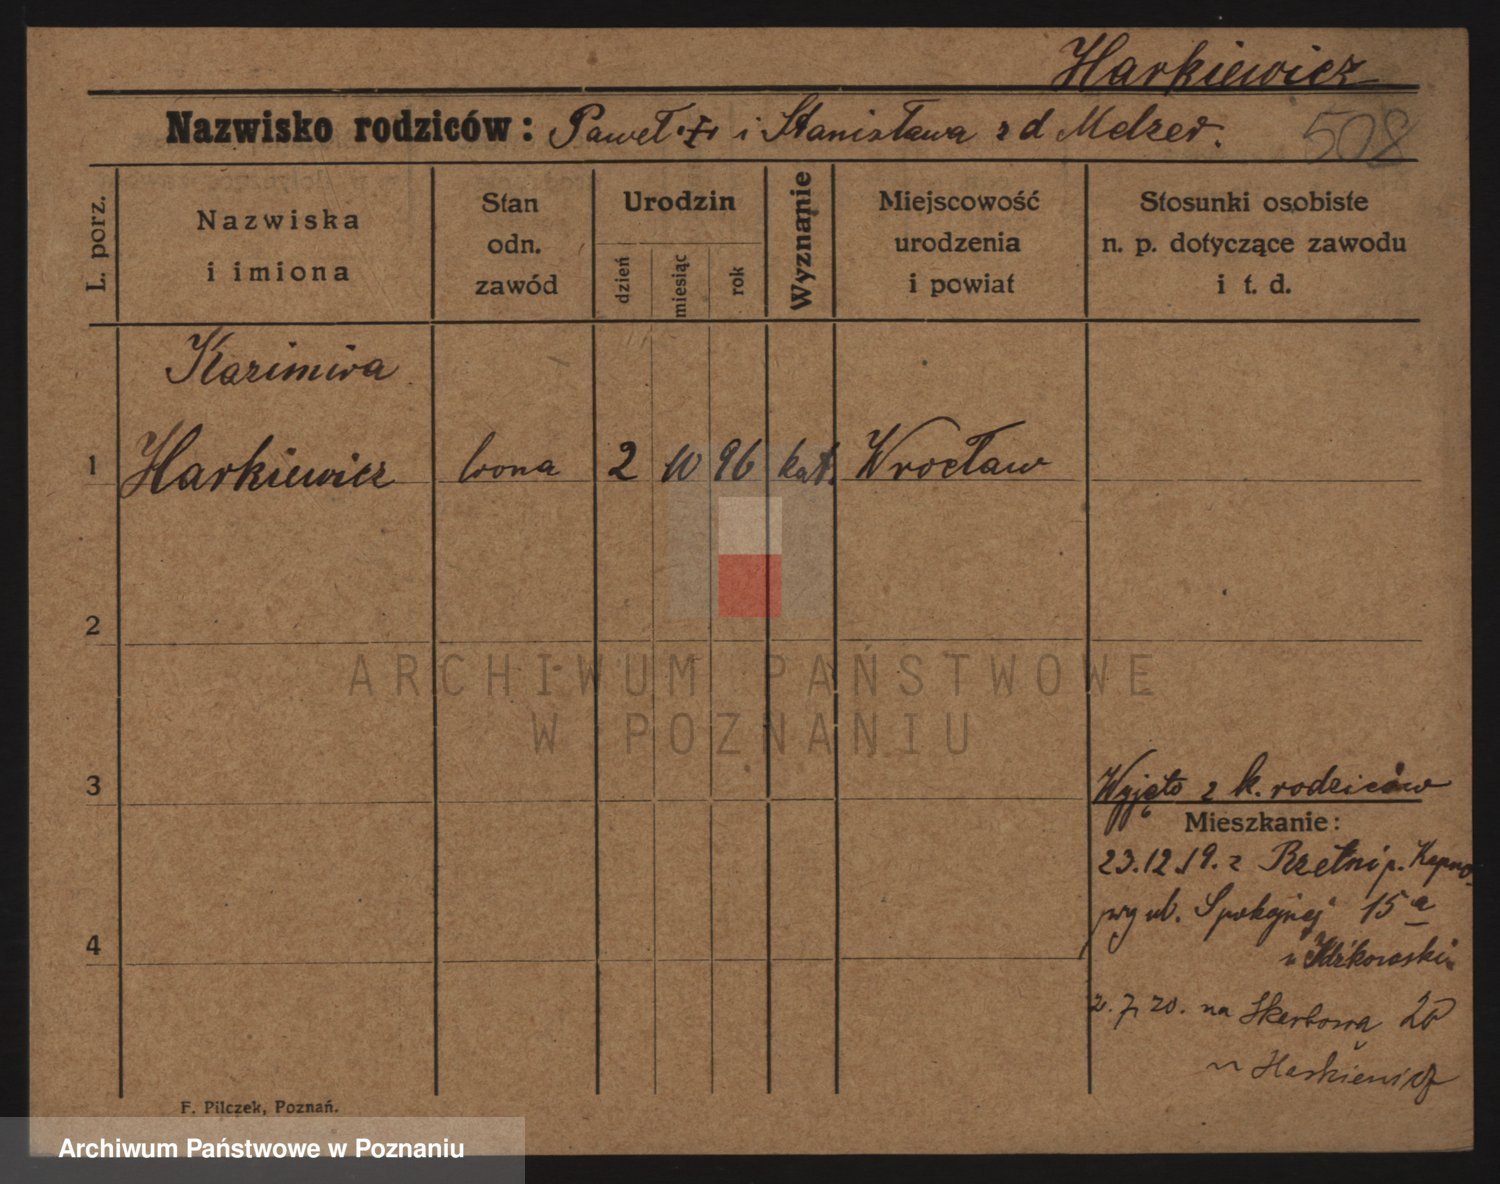 Harkiewicz
Nazwisko rodziców: Paweł i Stanisława z d Melzer. 508
L. porz.
Nazwiska
i imiona
Stan
odn.
zawód
Urodzin
dzień
miesiąc
rok
Wyznanie
Miejscowość
urodzenia
i powiat
Stosunki osobiste
n. p. dotyczące zawodu
i t. d.
Kazimira
1 Harkiewicz 2 10 96 kat. Wrocław
2
3
4
Wyjęto z k. rodziców
Mieszkanie:
23.12.19. z p.
ul. Spokojnej 15 a
2.7.20. na Skarbową 20
Harkiewicz
F. Pilczek, Poznań.
ARCHIWUM PAŃSTWOWE
W POZNANIU
Archiwum Państwowe w Poznaniu